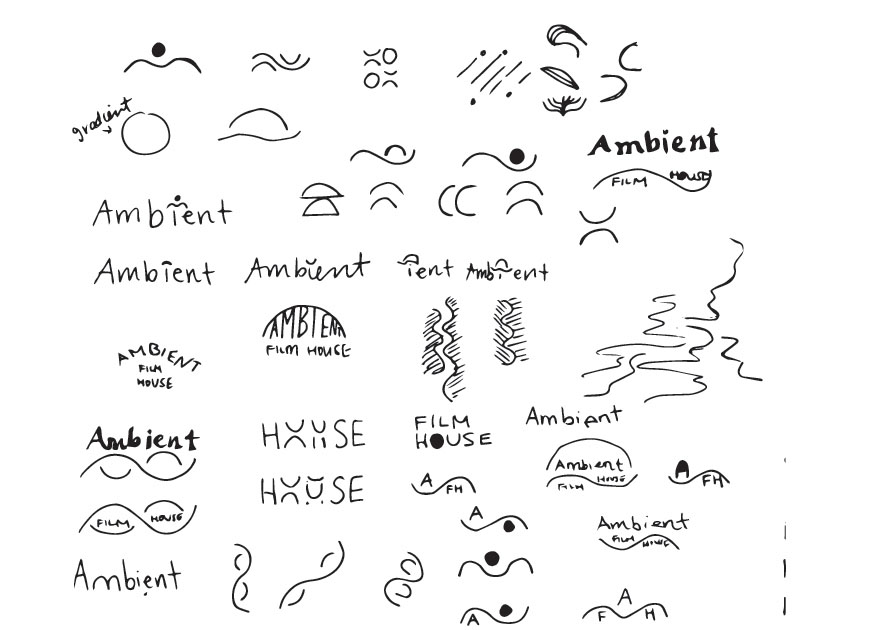 gradient
Ambient
FILM HOUSE
Ambient
Ambient
Ambient
ient
Ambient
AMBIENT
FILM HOUSE
AMBIENT
FILM
HOUSE
Ambient
FILM HOUSE
HOUSE
HOUSE
FILM
HOUSE
A
FH
Ambient
Ambient
FILM HOUSE
A
FH
A
Ambient
FILM HOUSE
Ambient
A
A
F H